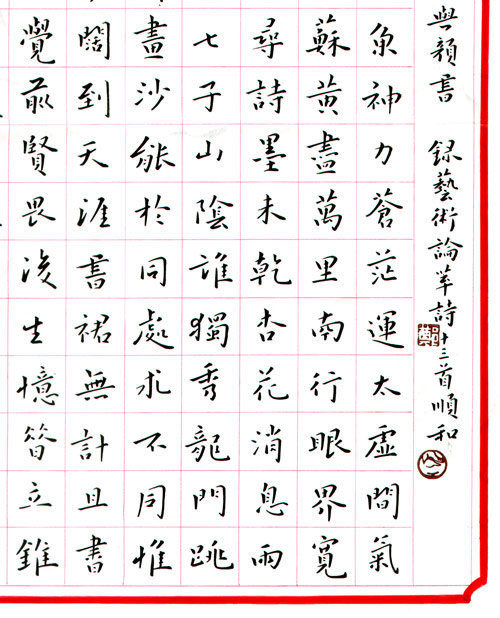 覺前賢畏後生憶昔立錐
闊到天涯書裙無計且書
畫沙能於同處求不同惟
七子山陰誰獨秀龍門跳
尋詩墨未乾杏花消息雨
蘇黃盡萬里南行眼界寬
魚神力蒼茫運太虛間氣
與顏書 録藝術論詩十三首順和